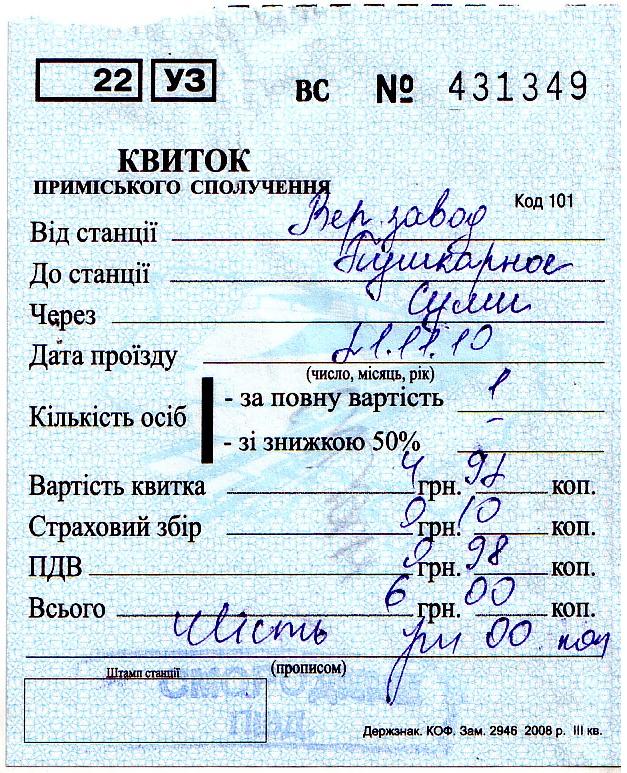 22 УЗ ВС № 431349
КВИТОК
ПРИМІСЬКОГО СПОЛУЧЕННЯ
Код 101
Від станції Вер. завод
До станції Пушкарное
Через Суми
Дата проїзду 21.11.10
(число, місяць, рік)
Кількість осіб
- за повну вартість 1
- зі знижкою 50% -
Вартість квитка 4 грн. 92 коп.
Страховий збір 0 грн. 10 коп.
ПДВ 0 грн. 98 коп.
Всього 6 грн. 00 коп.
Шість грн 00 коп
(прописом)
Штамп станції
Держзнак. КОФ. Зам. 2946 2008 р. III кв.